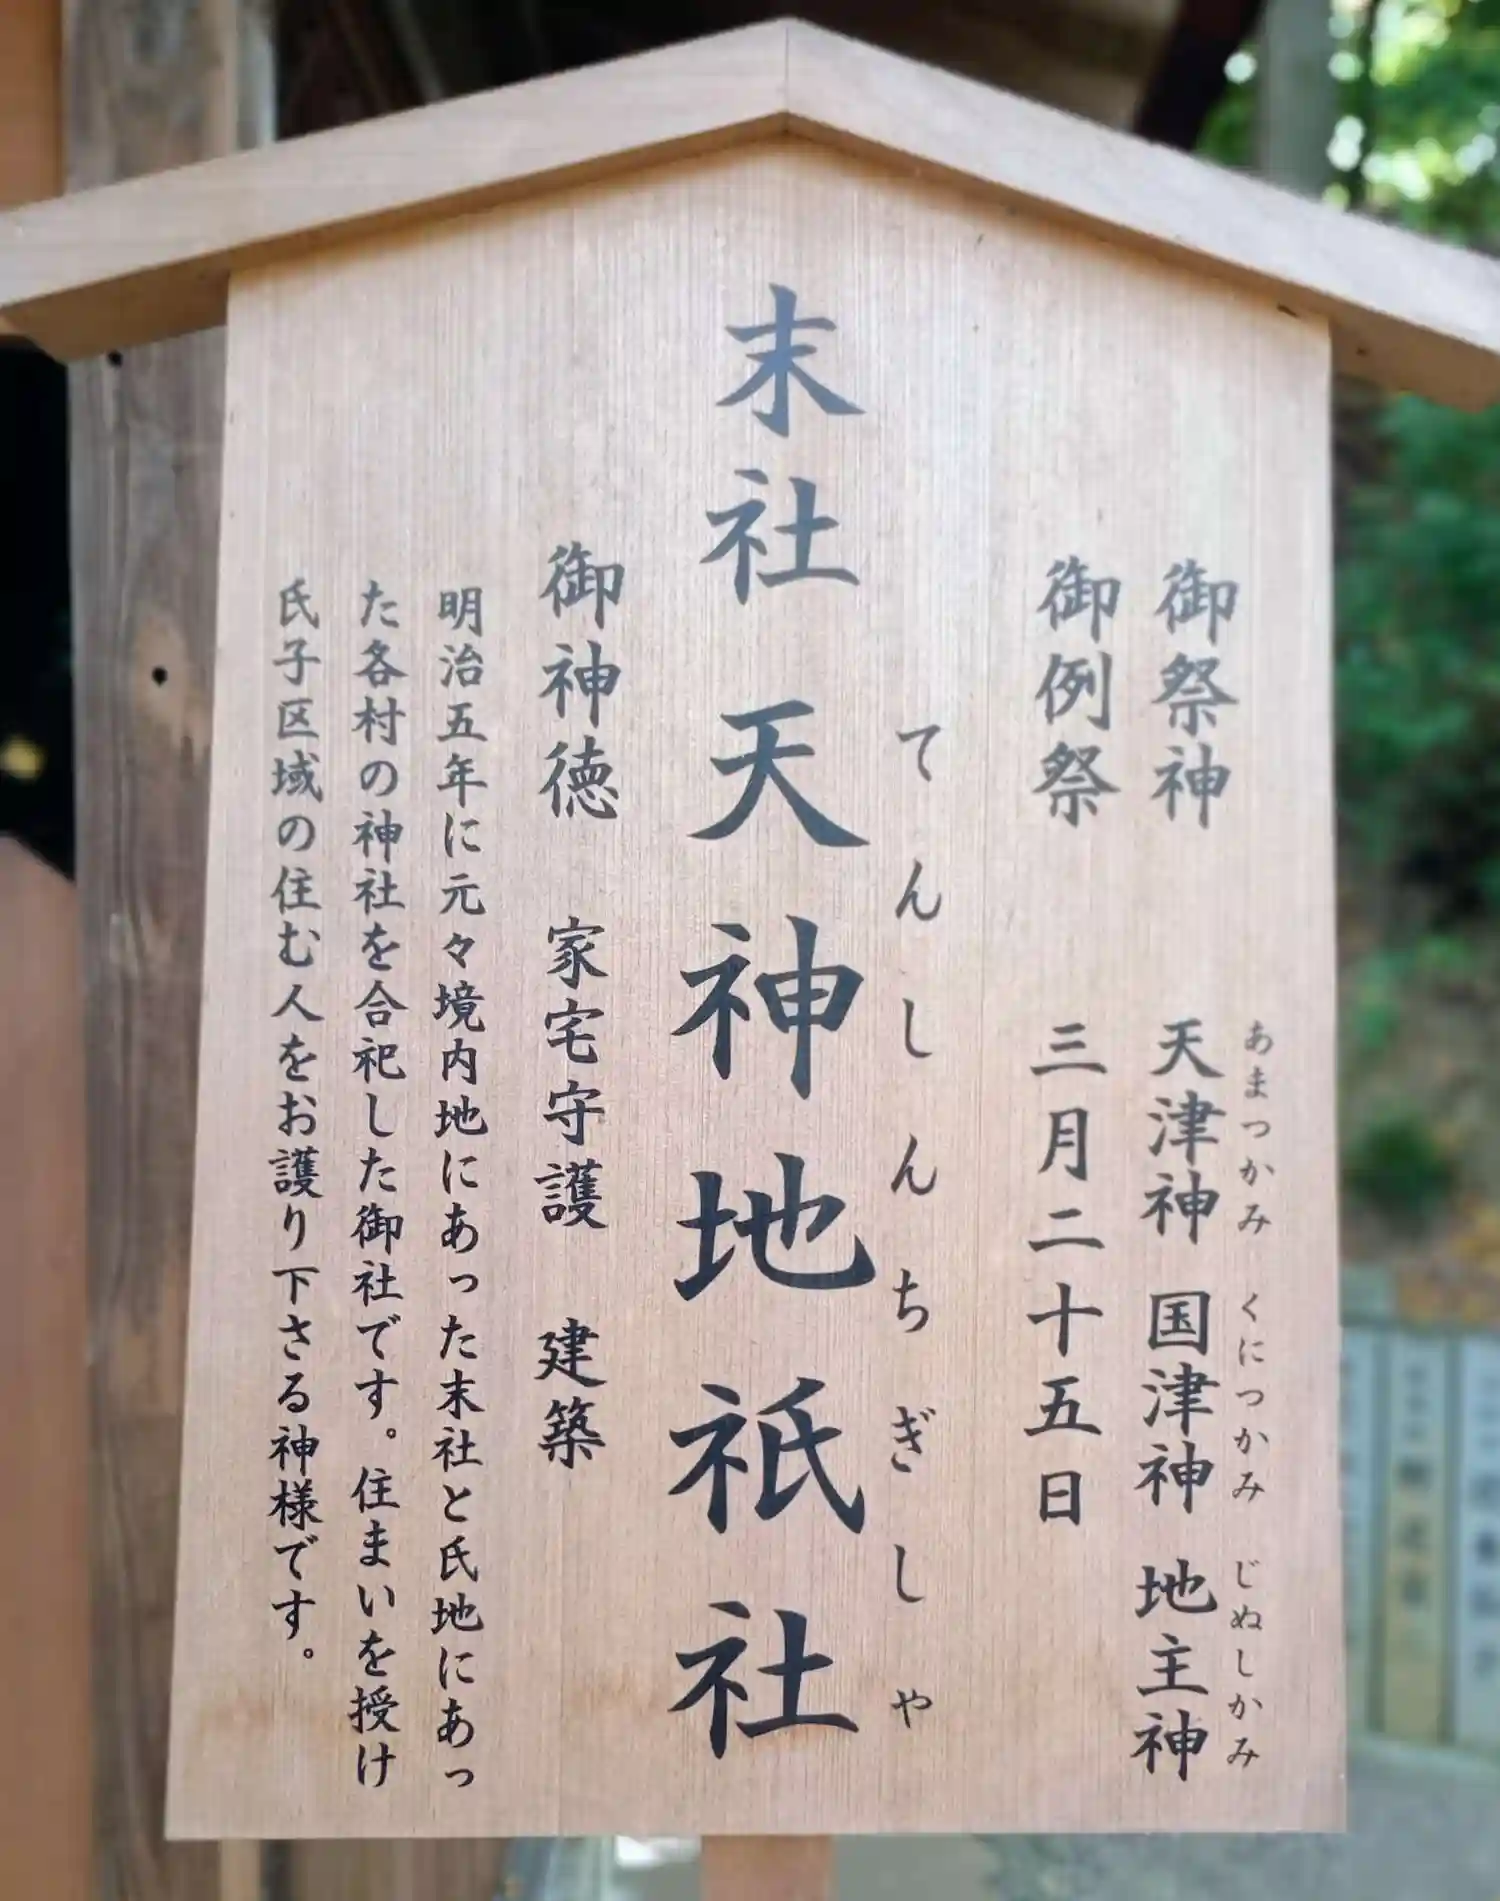 あまつかみ くにつかみ じぬしかみ
御祭神 天津神 国津神 地主神
御例祭 三月二十五日
てんしんちぎしゃ
末社 天神地祇社
御神徳 家宅守護 建築
明治五年に元々境内地にあった末社と氏地にあっ
た各村の神社を合祀した御社です。住まいを授け
氏子区域の住む人をお護り下さる神様です。